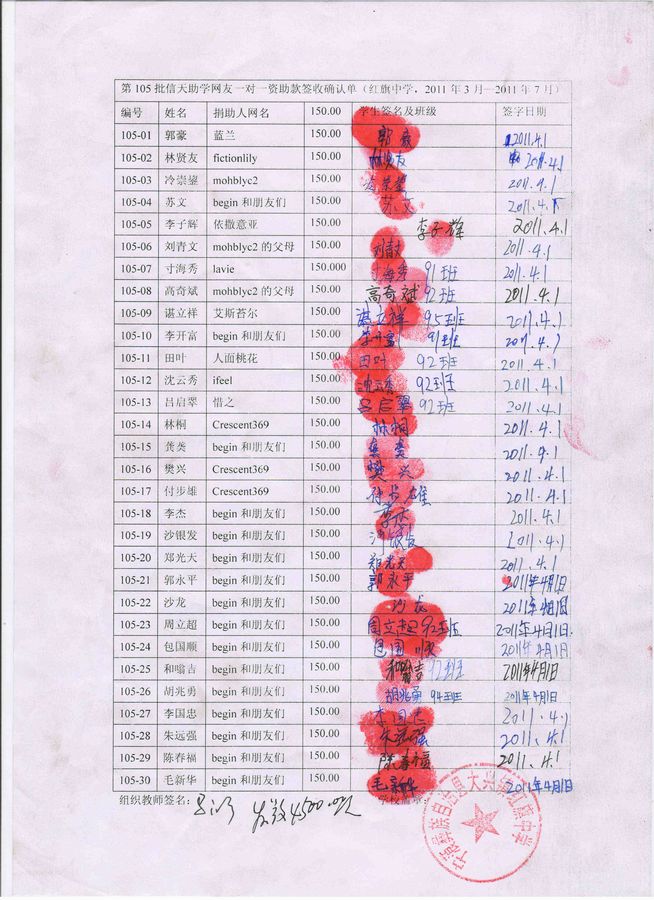 第 105 批信天助学网友一对一资助款签收确认单（红旗中学，2011 年 3 月—2011 年 7 月）
编号 姓名 捐助人网名 150.00 学生签名及班级 签字日期
105-01 郭豪 蓝兰 150.00 郭豪 2011.4.1
105-02 林贤友 fictionlily 150.00 林贤友 2011.4.1
105-03 冷崇鋆 mohblyc2 150.00 冷崇鋆 2011.4.1
105-04 苏文 begin 和朋友们 150.00 苏文 2011.4.1
105-05 李子辉 依撒意亚 150.00 李子辉 2011.4.1
105-06 刘青文 mohblyc2 的父母 150.00 刘青文 2011.4.1
105-07 寸海秀 lavie 150.000 寸海秀 91班 2011.4.1
105-08 高奇斌 mohblyc2 的父母 150.00 高奇斌 92班 2011.4.1
105-09 谌立祥 艾斯苔尔 150.00 谌立祥 95班 2011.4.1
105-10 李开富 begin 和朋友们 150.00 李开富 91班 2011.4.1
105-11 田叶 人面桃花 150.00 田叶 92班 2011.4.1
105-12 沈云秀 ifeel 150.00 沈云秀 92班 2011.4.1
105-13 吕启翠 惜之 150.00 吕启翠 92班 2011.4.1
105-14 林桐 Crescent369 150.00 林桐 2011.4.1
105-15 龚娄 begin 和朋友们 150.00 2011.4.1
105-16 樊兴 Crescent369 150.00 樊兴 2011.4.1
105-17 付步雄 Crescent369 150.00 付步雄 2011.4.1
105-18 李杰 begin 和朋友们 150.00 李杰 2011.4.1
105-19 沙银发 begin 和朋友们 150.00 沙银发 2011.4.1
105-20 郑光天 begin 和朋友们 150.00 郑光天 2011.4.1
105-21 郭永平 begin 和朋友们 150.00 郭永平 2011年4月1日
105-22 沙龙 begin 和朋友们 150.00 沙龙 2011年4月1日
105-23 周立超 begin 和朋友们 150.00 周立超 92班 2011年4月1日
105-24 包国顺 begin 和朋友们 150.00 包国顺 2011年4月1日
105-25 和嗡吉 begin 和朋友们 150.00 和嗡吉 92班 2011年4月1日
105-26 胡兆勇 begin 和朋友们 150.00 胡兆勇 94班 2011年4月1日
105-27 李国忠 begin 和朋友们 150.00 李国忠 2011.4.1
105-28 朱远强 begin 和朋友们 150.00 朱远强 2011.4.1
105-29 陈春福 begin 和朋友们 150.00 陈春福 2011.4.1
105-30 毛新华 begin 和朋友们 150.00 毛新华 2011年4月1日
组织教师签名： 4500.00元 学校盖章：
宁蒗彝族自治县大兴镇红旗中学